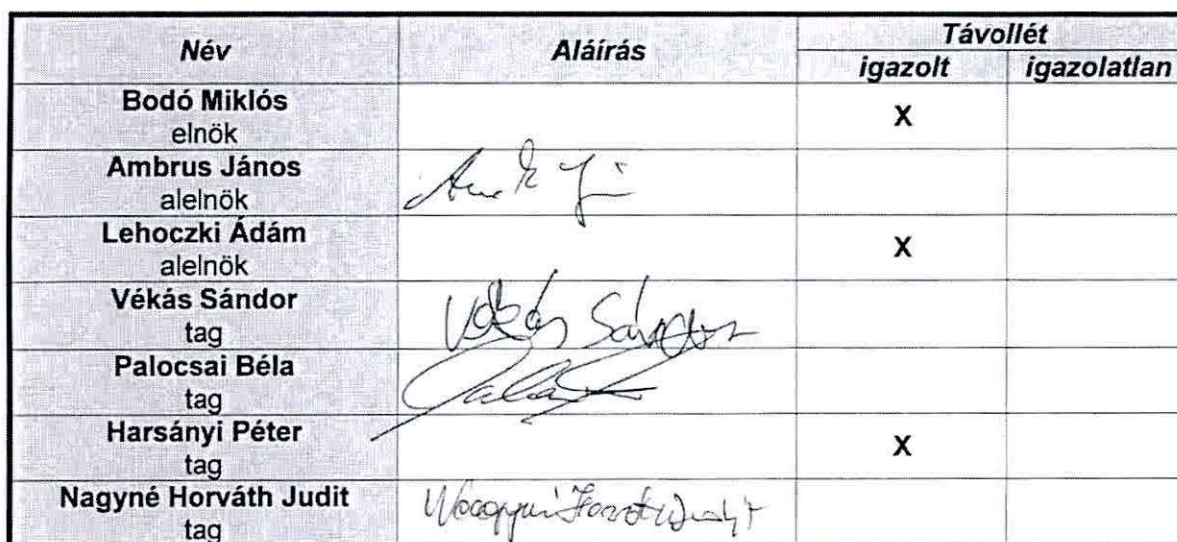 Név Aláírás Távollét
igazolt igazolatlan
Bodó Miklós
elnök X
Ambrus János
alelnök
Lehoczki Ádám
alelnök X
Vékás Sándor
tag Vékás Sándor
Palocsai Béla
tag
Harsányi Péter
tag X
Nagyné Horváth Judit
tag Nagyné Horváth Judit